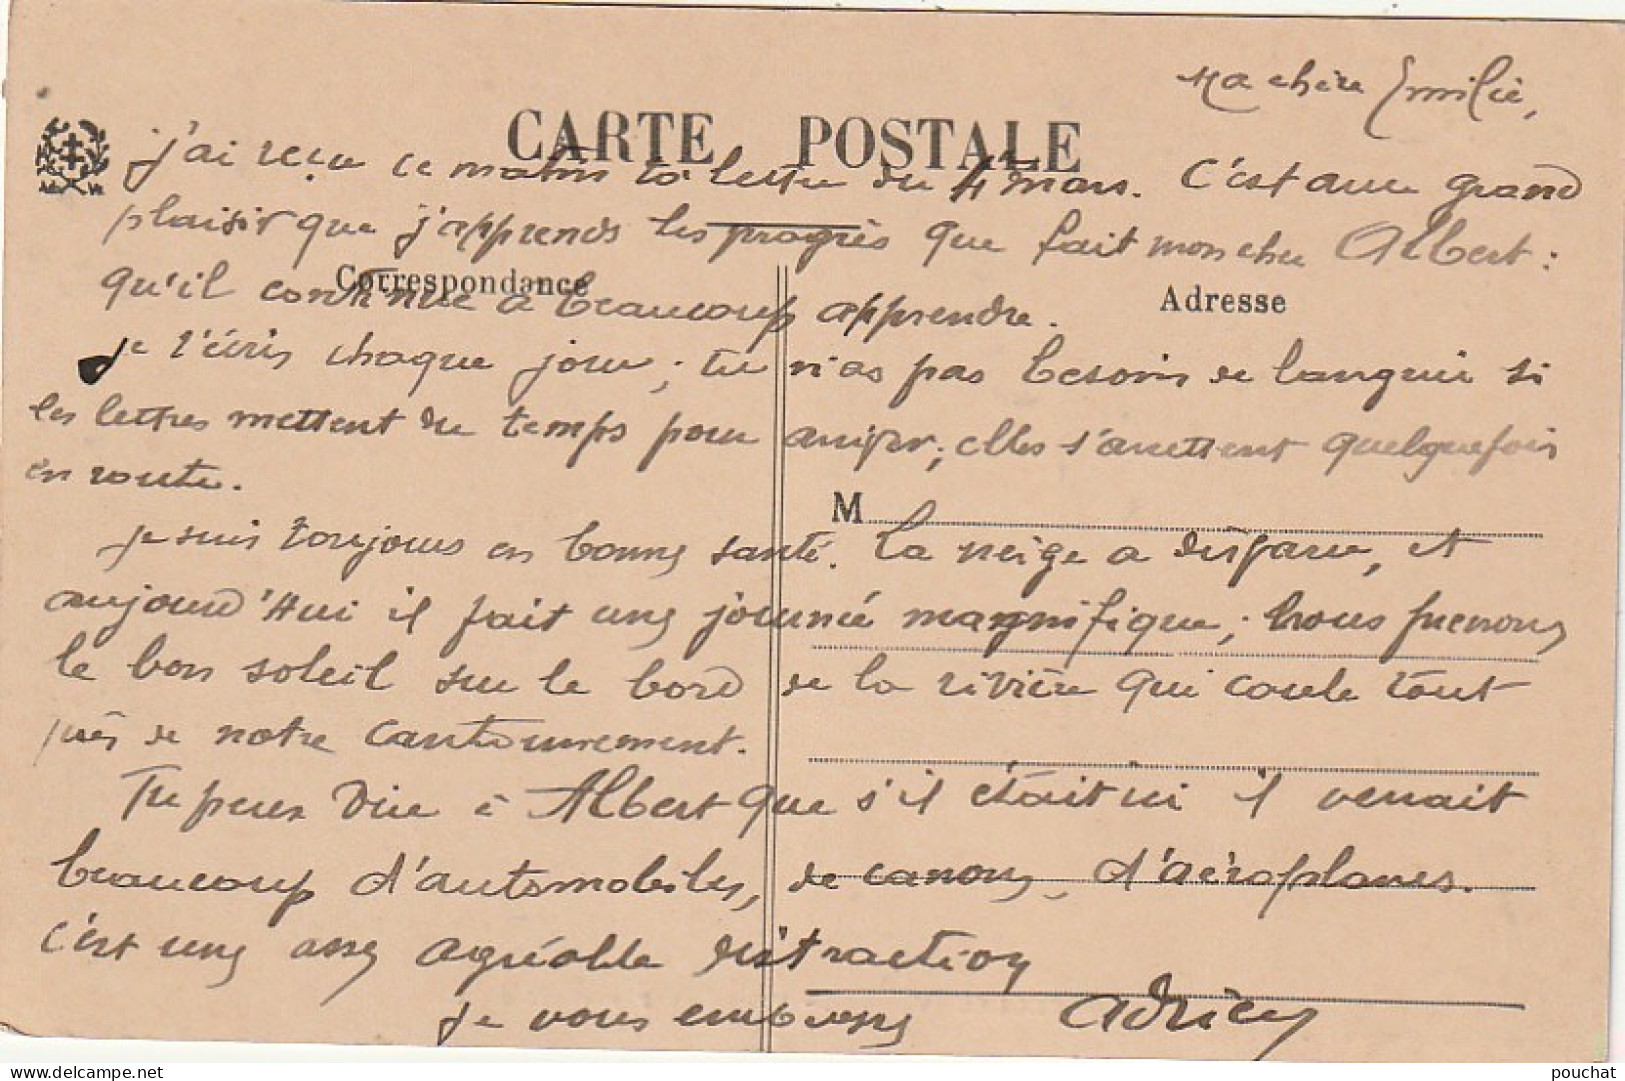 Ma chère Emilie,
CARTE POSTALE
j'ai reçu ce matin ta lettre du 4 mars. C'est avec grand
plaisir que j'apprends les progrès que fait mon cher Albert :
Correspondance
Adresse
qu'il continue a beaucoup apprendre.
Je t'écris chaque jour ; tu n'as pas besoin de languir si
les lettres mettent du temps pour arriver ; elles s'arrettent quelquefois
en route.
M
Je suis toujours en bonne santé. La neige a disparu, et
aujourd'hui il fait une journée magnifique ; nous prenons
le bon soleil sur le bord de la rivière qui coule tout
près de notre cantonnement.
Tu peux dire à Albert que s'il était ici il verrait
beaucoup d'automobiles, de canons, d'aéroplanes.
C'est une assez agréable distraction
Je vous embrasse Adrien
pouchat